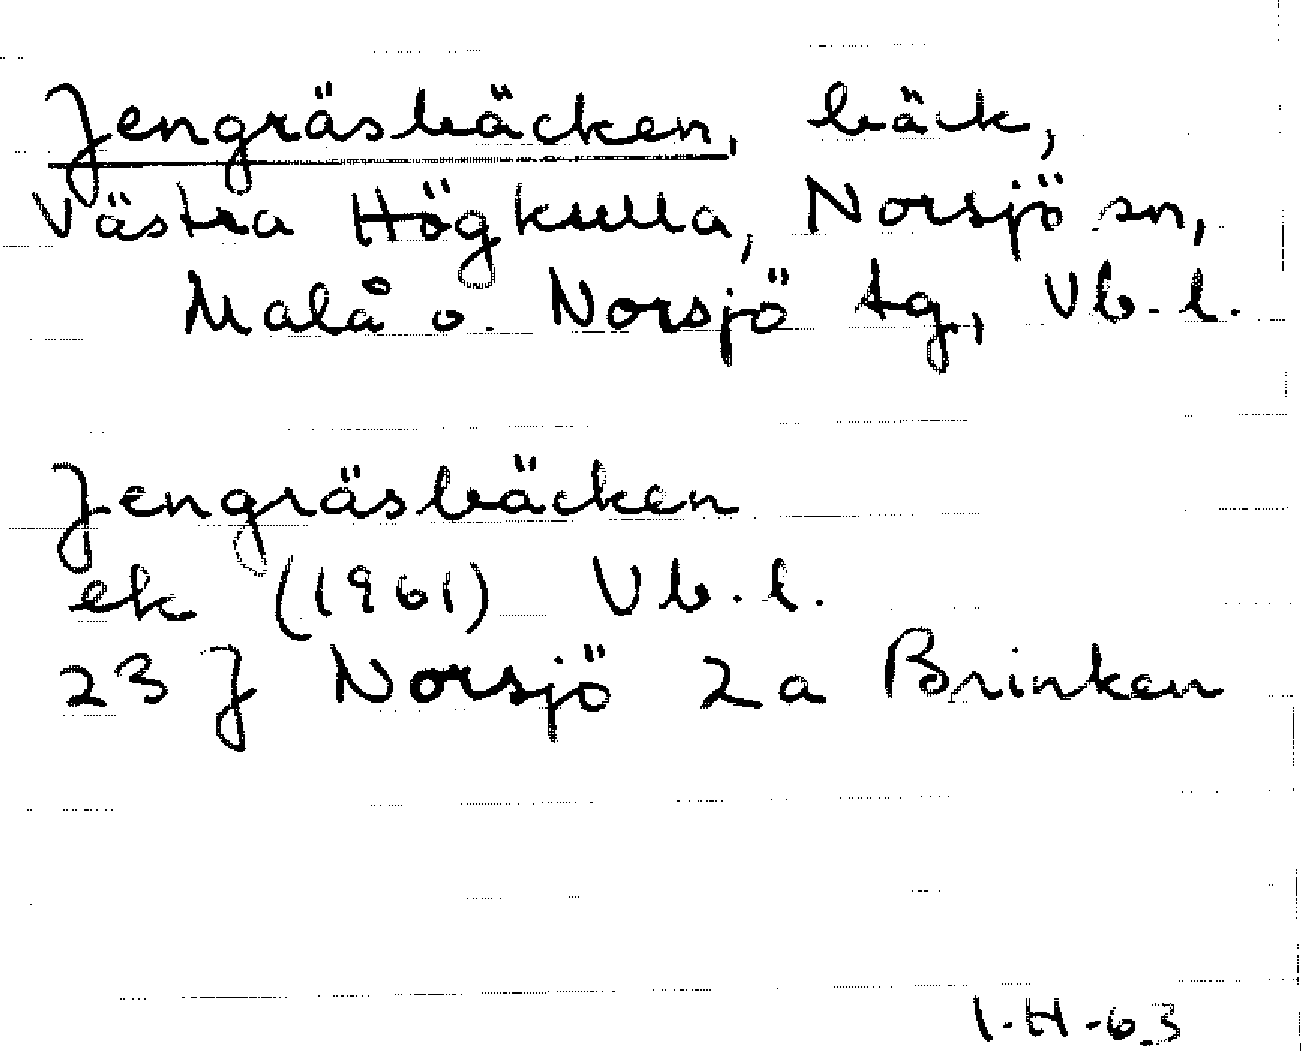 Jengräsbäcken, bäck,
Västra Högkulla, Norsjö sn,
Malå o. Norsjö tg., Vb. l.
Jengräsbäcken
ek (1961) Vb. l.
23 J Norsjö 2a Brinken
I.H-63